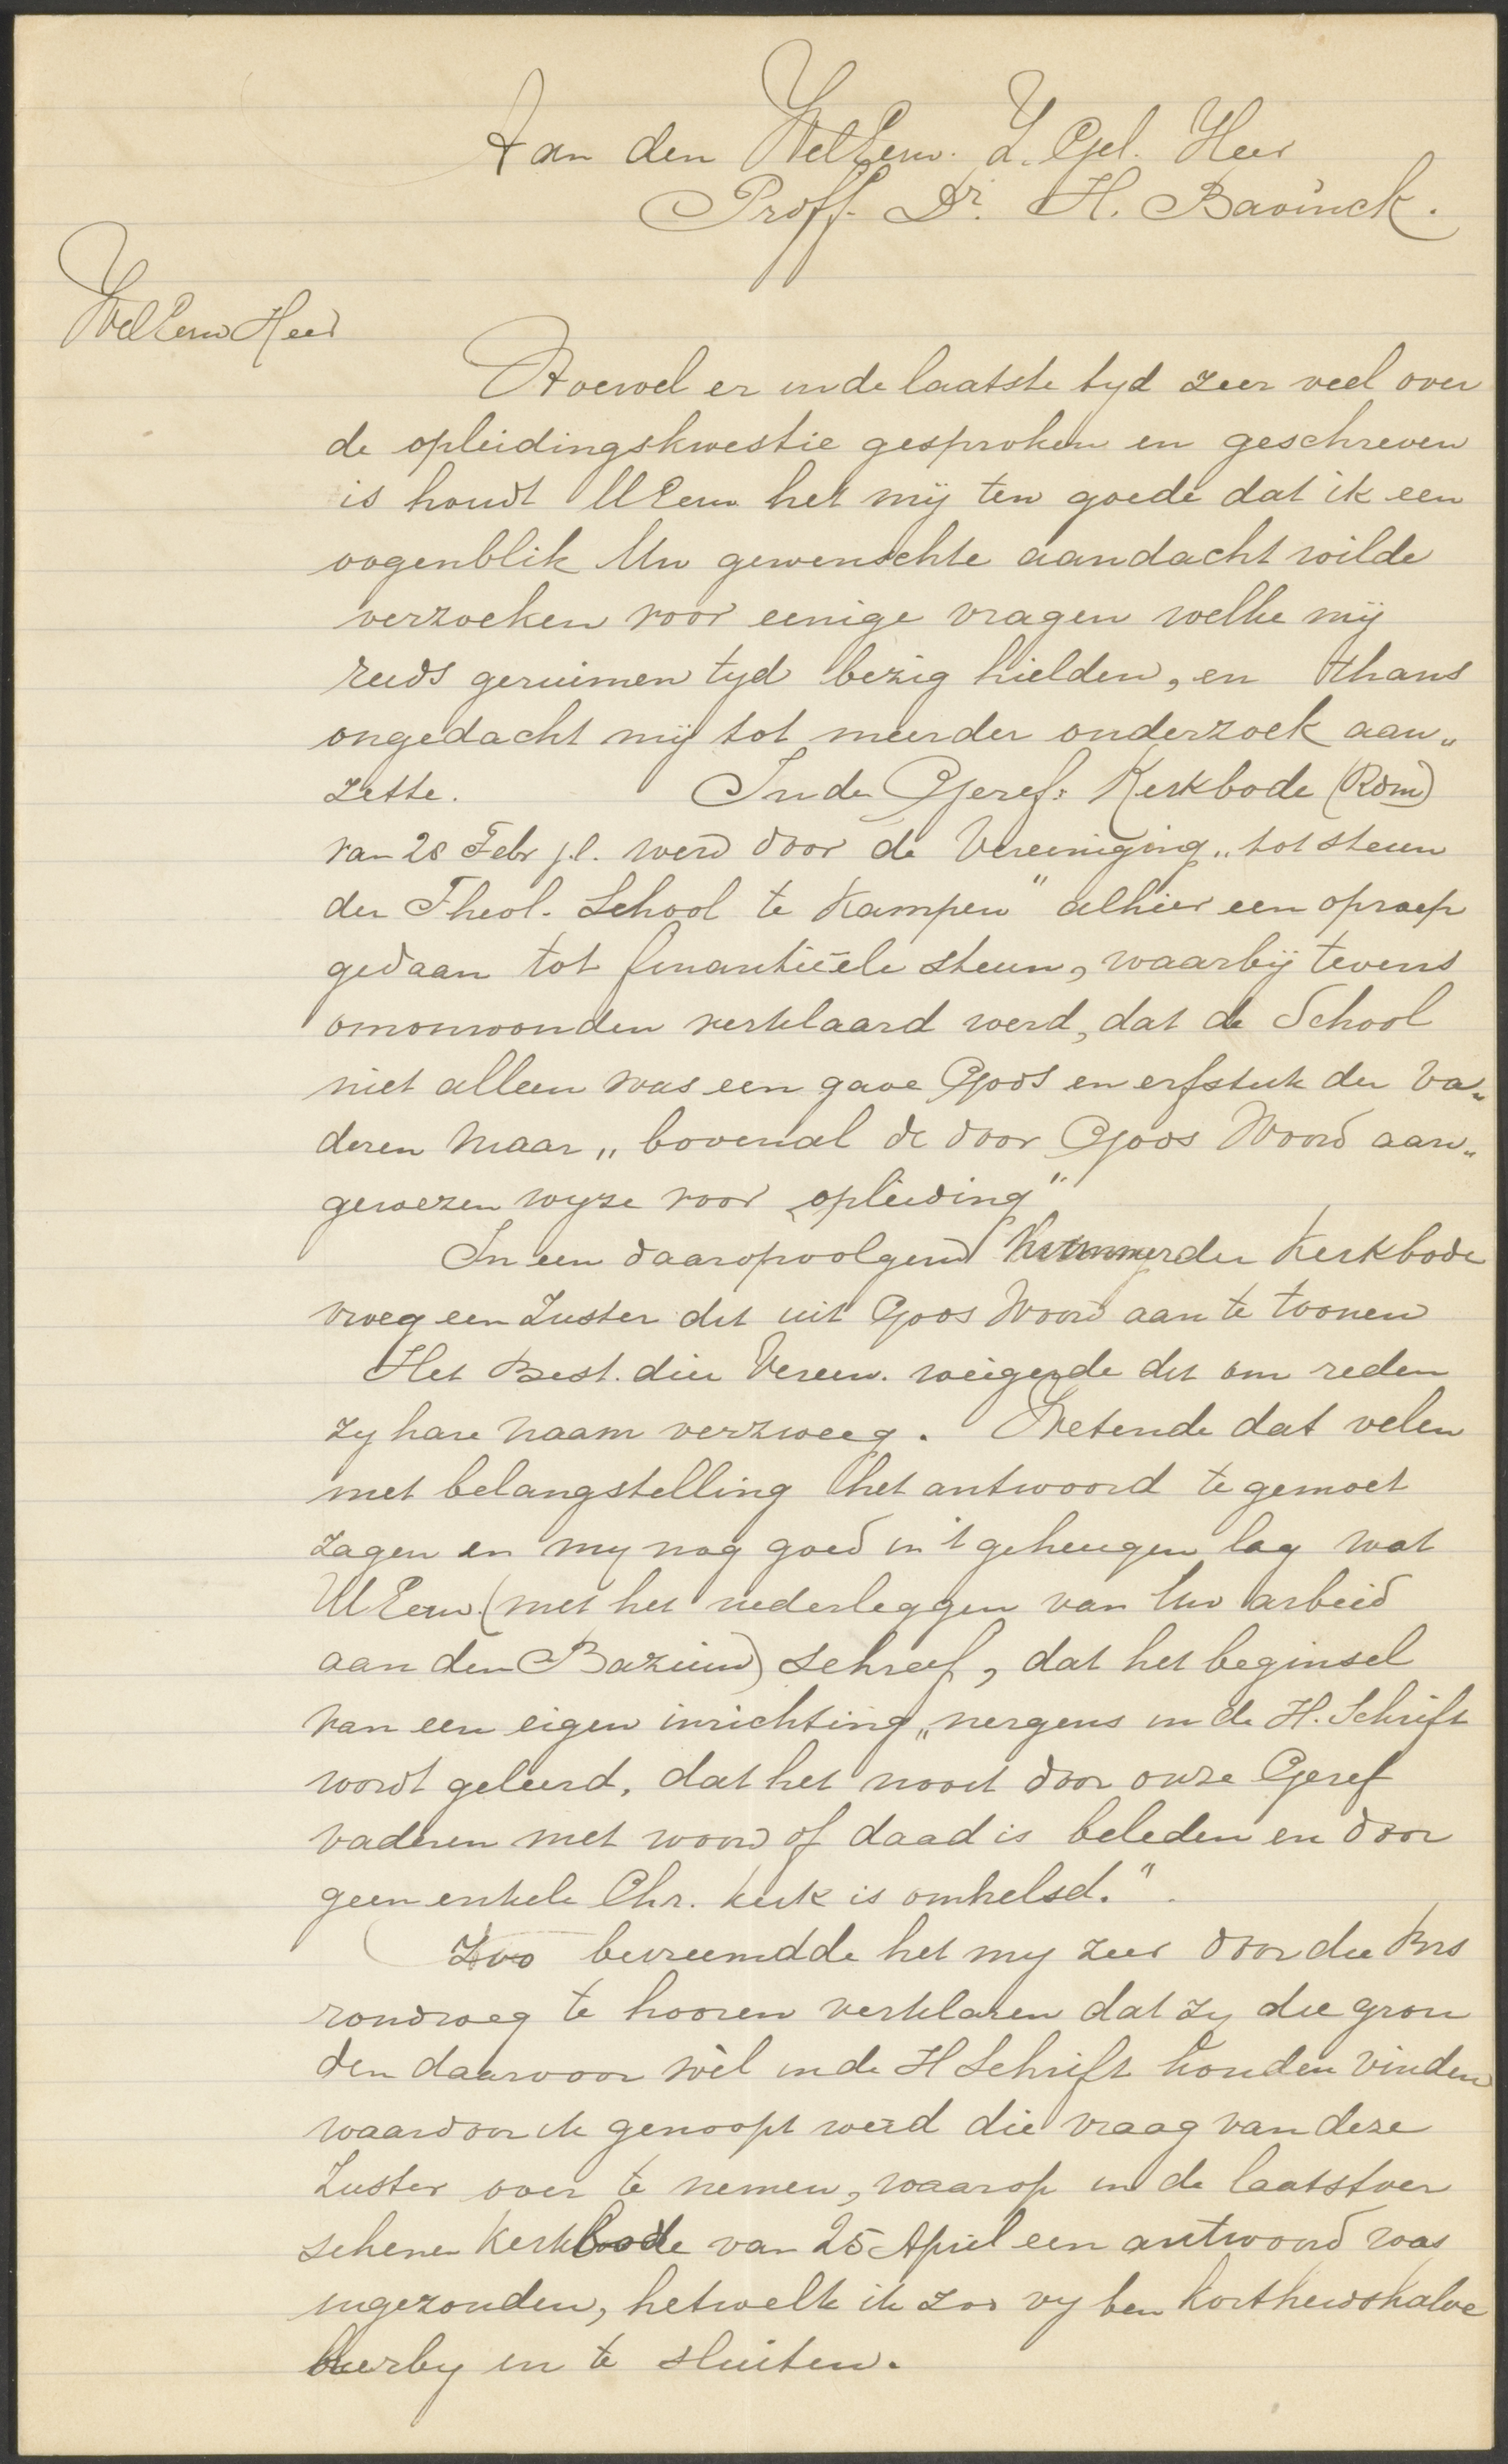 Aan den WelEerw. Z. Gel. Heer
Proff. Dr. H. Bavinck.
WelEerw Heer
Hoewel er in de laatste tyd zeer veel over
de opleidingskwestie gesproken en geschreven
is houdt UEerw het mij ten goede dat ik een
oogenblik Uw gewenschte aandacht wilde
verzoeken voor eenige vragen welke mij
reeds geruimen tyd bezig hielden, en thans
ongedacht mij tot meerder onderzoek aan„
zette. In de Geref: Kerkbode (Rdm)
van 28 Febr j.l. werd door de Vereeniging „tot steun
der Theol. School te Kampen" alhier een oproep
gedaan tot finantiëele steun, waarbij tevens
onomwonden verklaard werd, dat de School
niet alleen was een gave Gods en erfstuk der Va„
deren maar „bovenal de door Gods Woord aan„
gewezen wyze voor opleiding"
In een daaropvolgend nummer der Kerkbode
vroeg een Zuster dit uit Gods Woord aan te toonen
Het Best. dier Vereen. weigerde dit om reden
zy hare naam verzweeg. Wetende dat velen
met belangstelling het antwoord te gemoet
zagen en my nog goed in 't geheugen lag wat
UEerw. (met het nederleggen van Uw arbeid
aan den Bazuin) schreef, dat het beginsel
van een eigen inrichting „nergens in de H. Schrift
wordt geleerd, dat het nooit door onze Geref
vaderen met woord of daad is beleden en door
geen enkele Chr. kerk is omhelsd."
Zoo bevreemdde het my zeer door die Brs
rondweg te hooren verklaren dat zy die gron
den daarvoor wèl in de H Schrift konden vinden
waardoor ik genoopt werd die vraag van deze
Zuster over te nemen, waarop in de laatstver
schenen Kerkbode van 25 April een antwoord was
ingezonden, hetwelk ik zoo vry ben kortheidshalve
hierby in te sluiten.